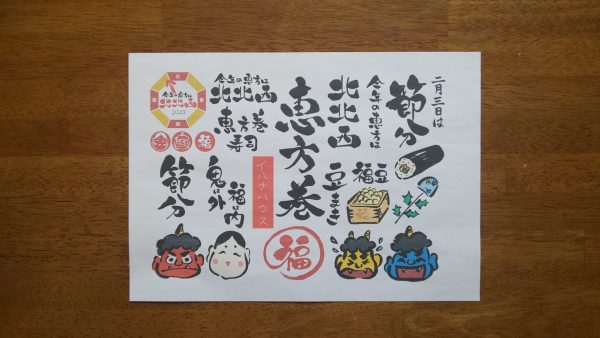 二月三日は
節分
今年の恵方は
北北西
恵方巻
福豆
豆まき
今年の恵方は
北北西
恵方巻
寿司
今年の恵方は
北北西
2022
福
イハナハウス
福は内
鬼は外
節分
福